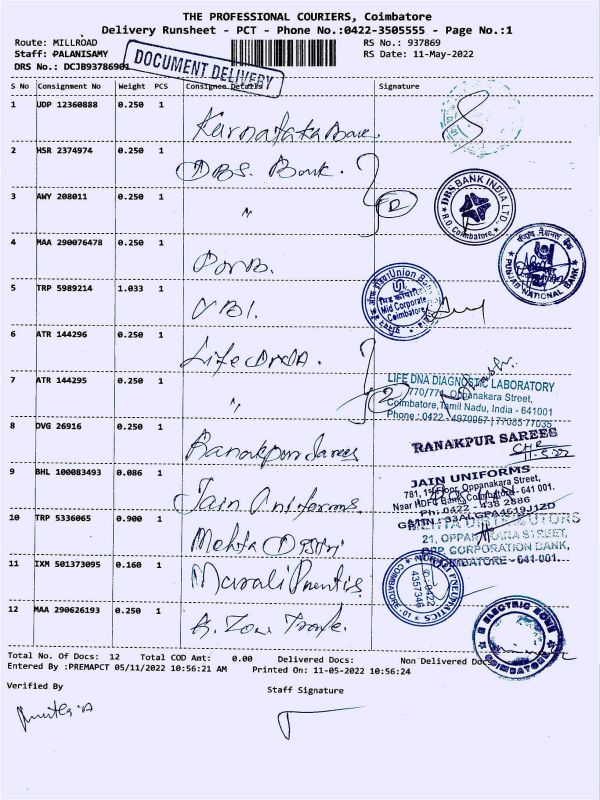 THE PROFESSIONAL COURIERS, Coimbatore
Delivery Runsheet - PCT - Phone No.:0422-3505555 - Page No.:1
Route: MILLROAD RS No.: 937869
Staff: PALANISAMY RS Date: 11-May-2022
DRS No.: DCJB93786901
DOCUMENT DELIVERY
S No Consignment No Weight PCS Consignee Details Signature
1 UDP 12360888 0.250 1 Karnataka Bank
2 HSR 2374974 0.250 1 DBS. Bank.
3 AWY 208011 0.250 1 〃 2
DBS BANK INDIA LTD.
R.O. Coimbatore
4 MAA 290076478 0.250 1
PUNJAB NATIONAL BANK
5 TRP 5989214 1.033 1 UBI.
Union Bank
Mid Corporate
Coimbatore
6 ATR 144296 0.250 1 Life DNA.
7 ATR 144295 0.250 1 〃 2
LIFE DNA DIAGNOSTIC LABORATORY
770/771, Oppanakara Street,
Coimbatore, Tamil Nadu, India - 641001
Phone : 0422 - 4970957 | 77085 77035
8 DVG 26916 0.250 1 Ranakpur Sarees
RANAKPUR SAREES
9 BHL 100083493 0.086 1 Jain Uniforms
JAIN UNIFORMS
781, 1st Floor, Oppanakara Street,
Near HDFC Bank, Coimbatore - 641 001.
Ph: 0422 - 438 2886
10 TRP 5336065 0.900 1 Mehta Distri
MEHTA DISTRIBUTORS
21, OPPANAKARA STREET,
OPP CORPORATION BANK,
COIMBATORE - 641 001.
11 IXM 501373095 0.160 1
PNEUMATICS
COIMBATORE - 01
0422
4357346
12 MAA 290626193 0.250 1
ELECTRIC ZONE
COIMBATORE
Total No. Of Docs: 12 Total COD Amt: 0.00 Delivered Docs: Non Delivered Docs:
Entered By :PREMAPCT 05/11/2022 10:56:21 AM Printed On: 11-05-2022 10:56:24
Verified By Staff Signature